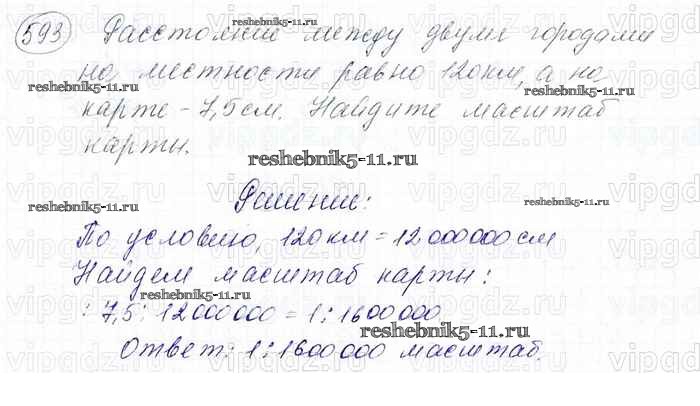 593 Расстояние между двумя городами
на местности равно 120км, а на
карте - 7,5 см. Найдите масштаб
карты.
Решение:
По условию, 120км = 12 000 000 см
Найдем масштаб карты:
: 7,5 : 12 000 000 = 1 : 1600 000
Ответ: 1 : 1600 000 масштаб.
reshebnik5-11.ru
reshebnik5-11.ru
reshebnik5-11.ru
reshebnik5-11.ru
reshebnik5-11.ru
reshebnik5-11.ru
reshebnik5-11.ru
vipgdz.ru